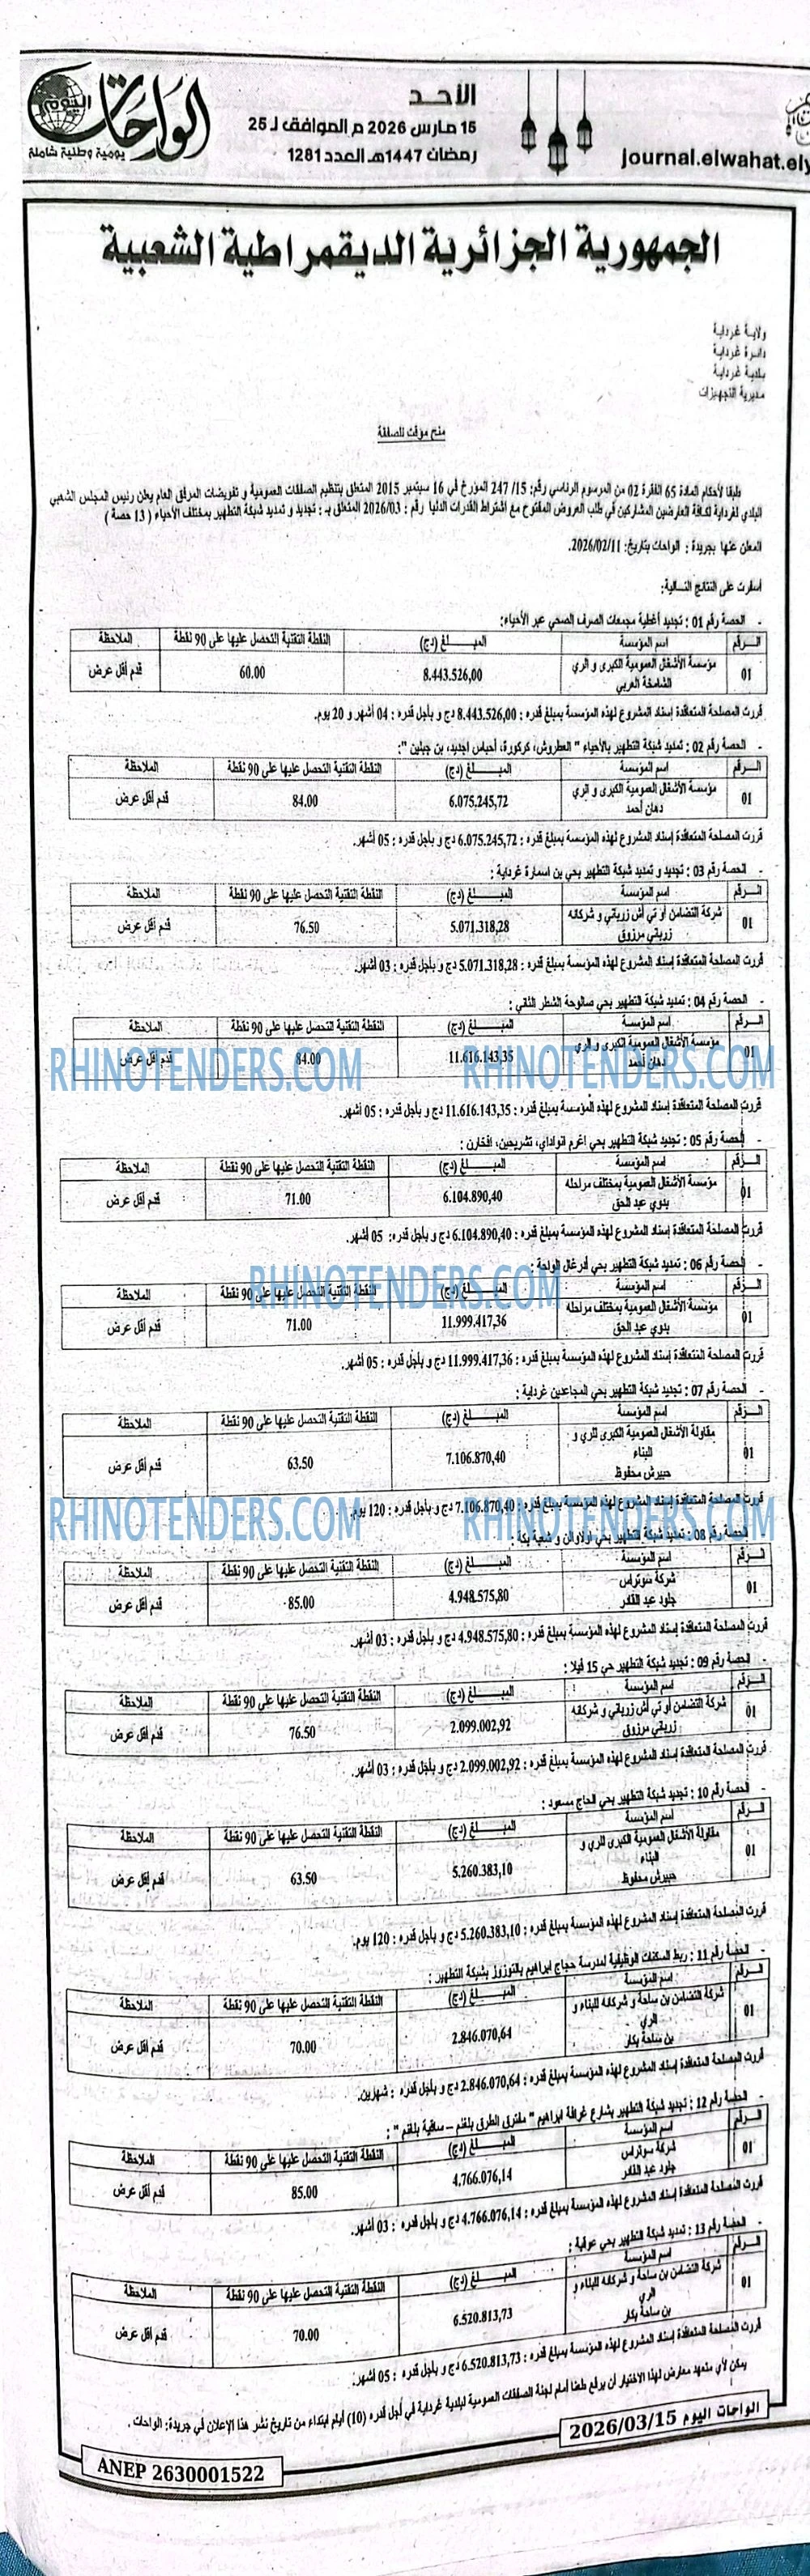 الواحات
اليوم
يومية وطنية شاملة
الأحد
15 مارس 2026 م الموافق لـ 25
رمضان 1447هـ العدد 1281
journal.elwahat.ely
الجمهورية الجزائرية الديمقراطية الشعبية
ولاية غرداية
دائرة غرداية
بلدية غرداية
مديرية التجهيزات
منح مؤقت للصفقة
طبقا لأحكام المادة 65 الفقرة 02 من المرسوم الرئاسي رقم: 15/ 247 المؤرخ في 16 سبتمبر 2015 المتعلق بتنظيم الصفقات العمومية و تفويضات المرفق العام يعلن رئيس المجلس الشعبي
البلدي لغرداية لكافة العارضين المشاركين في طلب العروض المفتوح مع اشتراط القدرات الدنيا رقم : 2026/03 المتعلق بـ : تجديد و تمديد شبكة التطهير بمختلف الأحياء ( 13 حصة )
المعلن عنها بجريدة : الواحات بتاريخ: 2026/02/11.
أسفرت على النتائج التالية:
- الحصة رقم 01 : تجديد أغطية مجمعات الصرف الصحي عبر الأحياء:
الـرقم اسم المؤسسة المبـــلغ (دج) النقطة التقنية التحصل عليها على 90 نقطة الملاحظة
01 مؤسسة الأشغال العمومية الكبرى و الري 8.443.526,00 60.00 قدم أقل عرض
الشامخة العربي
قررت المصلحة المتعاقدة إسناد المشروع لهذه المؤسسة بمبلغ قدره : 8.443.526,00 دج و بأجل قدره : 04 أشهر و 20 يوم.
- الحصة رقم 02 : تمديد شبكة التطهير بالأحياء " العطروش، كركورة، أحباس اجديد، بن جبلين ":
الـرقم اسم المؤسسة المبـــلغ (دج) النقطة التقنية التحصل عليها على 90 نقطة الملاحظة
01 مؤسسة الأشغال العمومية الكبرى و الري 6.075.245,72 84.00 قدم أقل عرض
دهان أحمد
قررت المصلحة المتعاقدة إسناد المشروع لهذه المؤسسة بمبلغ قدره : 6.075.245,72 دج و بأجل قدره : 05 أشهر.
- الحصة رقم 03 : تجديد و تمديد شبكة التطهير بحي بن اسمارة غرداية :
الـرقم اسم المؤسسة المبـــلغ (دج) النقطة التقنية التحصل عليها على 90 نقطة الملاحظة
01 شركة التضامن أو تي أش زرباني و شركائه 5.071.318,28 76.50 قدم أقل عرض
زرباني مرزوق
قررت المصلحة المتعاقدة إسناد المشروع لهذه المؤسسة بمبلغ قدره : 5.071.318,28 دج و بأجل قدره : 03 أشهر.
- الحصة رقم 04 : تمديد شبكة التطهير بحي صالوحة الشطر الثاني :
الـرقم اسم المؤسسة المبـــلغ (دج) النقطة التقنية التحصل عليها على 90 نقطة الملاحظة
01 مؤسسة الأشغال العمومية الكبرى و الري 11.616.143,35 84.00 قدم أقل عرض
دهان أحمد
RHINOTENDERS.COM RHINOTENDERS.COM
قررت المصلحة المتعاقدة إسناد المشروع لهذه المؤسسة بمبلغ قدره : 11.616.143,35 دج و بأجل قدره : 05 أشهر.
- الحصة رقم 05 : تجديد شبكة التطهير بحي اغرم انواداي، تشريحين، افخارن :
الرقم اسم المؤسسة المبـــلغ (دج) النقطة التقنية التحصل عليها على 90 نقطة الملاحظة
01 مؤسسة الأشغال العمومية بمختلف مراحله 6.104.890,40 71.00 قدم أقل عرض
بدوي عبد الحق
قررت المصلحة المتعاقدة إسناد المشروع لهذه المؤسسة بمبلغ قدره : 6.104.890,40 دج و بأجل قدره: 05 أشهر.
- الحصة رقم 06 : تمديد شبكة التطهير بحي أدرغال الواحة :
الـرقم اسم المؤسسة المبـــلغ (دج) النقطة التقنية التحصل عليها على 90 نقطة الملاحظة
RHINOTENDERS.COM
01 مؤسسة الأشغال العمومية بمختلف مراحله 11.999.417,36 71.00 قدم أقل عرض
بدوي عبد الحق
قررت المصلحة المتعاقدة إسناد المشروع لهذه المؤسسة بمبلغ قدره : 11.999.417,36 دج و بأجل قدره : 05 أشهر.
- الحصة رقم 07 : تجديد شبكة التطهير بحي المجاهدين غرداية :
الـرقم اسم المؤسسة المبـــلغ (دج) النقطة التقنية التحصل عليها على 90 نقطة الملاحظة
01 مقاولة الأشغال العمومية الكبرى للري و 7.106.870,40 63.50 قدم أقل عرض
البناء
حبيرش محفوظ
قررت المصلحة المتعاقدة إسناد المشروع لهذه المؤسسة بمبلغ قدره : 7.106.870,40 دج و بأجل قدره : 120 يوم.
RHINOTENDERS.COM RHINOTENDERS.COM
الحصة رقم 08 : تمديد شبكة التطهير بحي اولاوالن و شعبة بكة :
الـرقم اسم المؤسسة المبـــلغ (دج) النقطة التقنية التحصل عليها على 90 نقطة الملاحظة
01 شركة سوتراس 4.948.575,80 85.00 قدم أقل عرض
جلود عبد القادر
قررت المصلحة المتعاقدة إسناد المشروع لهذه المؤسسة بمبلغ قدره : 4.948.575,80 دج و بأجل قدره : 03 أشهر.
- الحصة رقم 09 : تجديد شبكة التطهير حي 15 فيلا :
الـرقم اسم المؤسسة المبـــلغ (دج) النقطة التقنية التحصل عليها على 90 نقطة الملاحظة
01 شركة التضامن أو تي أش زرباني و شركائه 2.099.002,92 76.50 قدم أقل عرض
زرباني مرزوق
قررت المصلحة المتعاقدة إسناد المشروع لهذه المؤسسة بمبلغ قدره : 2.099.002,92 دج و بأجل قدره : 03 أشهر.
- الحصة رقم 10 : تجديد شبكة التطهير بحي الحاج مسعود :
الـرقم اسم المؤسسة المبـــلغ (دج) النقطة التقنية التحصل عليها على 90 نقطة الملاحظة
01 مقاولة الأشغال العمومية الكبرى للري و 5.260.383,10 63.50 قدم أقل عرض
البناء
حبيرش محفوظ
قررت المصلحة المتعاقدة إسناد المشروع لهذه المؤسسة بمبلغ قدره : 5.260.383,10 دج و بأجل قدره : 120 يوم.
- الحصة رقم 11 : ربط السكنات الوظيفية لمدرسة حجاج ابراهيم بالتوزوز بشبكة التطهير :
الـرقم اسم المؤسسة المبـــلغ (دج) النقطة التقنية التحصل عليها على 90 نقطة الملاحظة
01 شركة التضامن بن ساحة و شركائه للبناء و 2.846.070,64 70.00 قدم أقل عرض
الري
بن ساحة بكار
قررت المصلحة المتعاقدة إسناد المشروع لهذه المؤسسة بمبلغ قدره : 2.846.070,64 دج و بأجل قدره : شهرين.
- الحصة رقم 12 : تجديد شبكة التطهير بشارع غرافة ابراهيم " مفترق الطرق بلغنم – ساقية بلغنم " :
الـرقم اسم المؤسسة المبـــلغ (دج) النقطة التقنية التحصل عليها على 90 نقطة الملاحظة
01 شركة سوتراس 4.766.076,14 85.00 قدم أقل عرض
جلود عبد القادر
قررت المصلحة المتعاقدة إسناد المشروع لهذه المؤسسة بمبلغ قدره : 4.766.076,14 دج و بأجل قدره : 03 أشهر.
- الحصة رقم 13 : تمديد شبكة التطهير بحي عوقبة :
الـرقم اسم المؤسسة المبـــلغ (دج) النقطة التقنية التحصل عليها على 90 نقطة الملاحظة
01 شركة التضامن بن ساحة و شركائه للبناء و 6.520.813,73 70.00 قدم أقل عرض
الري
بن ساحة بكار
قررت المصلحة المتعاقدة إسناد المشروع لهذه المؤسسة بمبلغ قدره : 6.520.813,73 دج و بأجل قدره : 05 أشهر.
يمكن لأي متعهد معارض لهذا الاختيار أن يرفع طعنا أمام لجنة الصفقات العمومية لبلدية غرداية في أجل قدره (10) أيام ابتداء من تاريخ نشر هذا الإعلان في جريدة: الواحات .
الواحات اليوم 2026/03/15
ANEP 2630001522